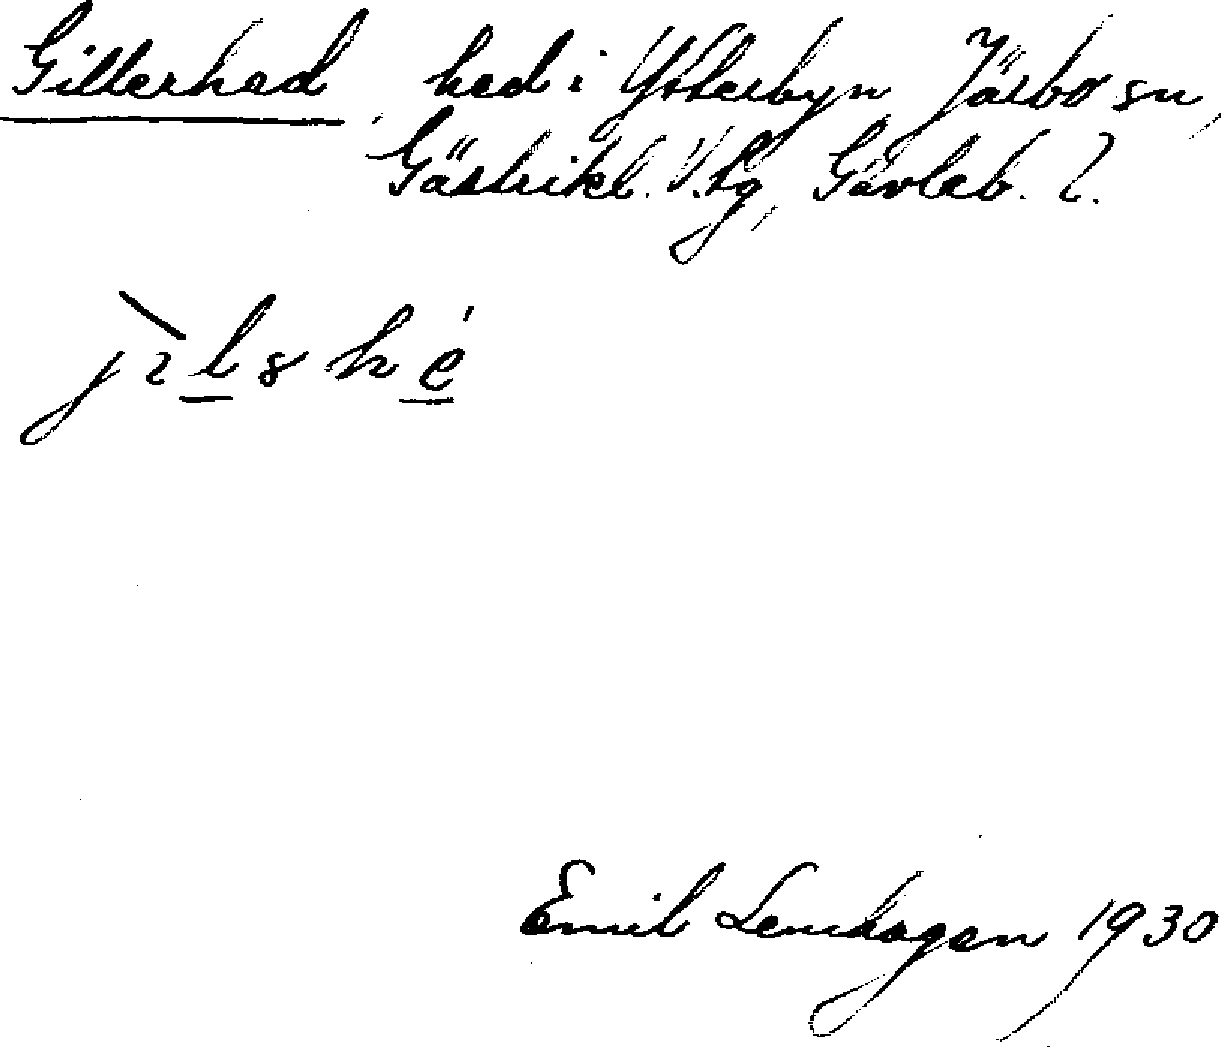 Gillerhed, hed i Ytterbyn Järbo sn,
Gästrikl. V. tg, Gävleb. l.
Emil Lenhagen 1930